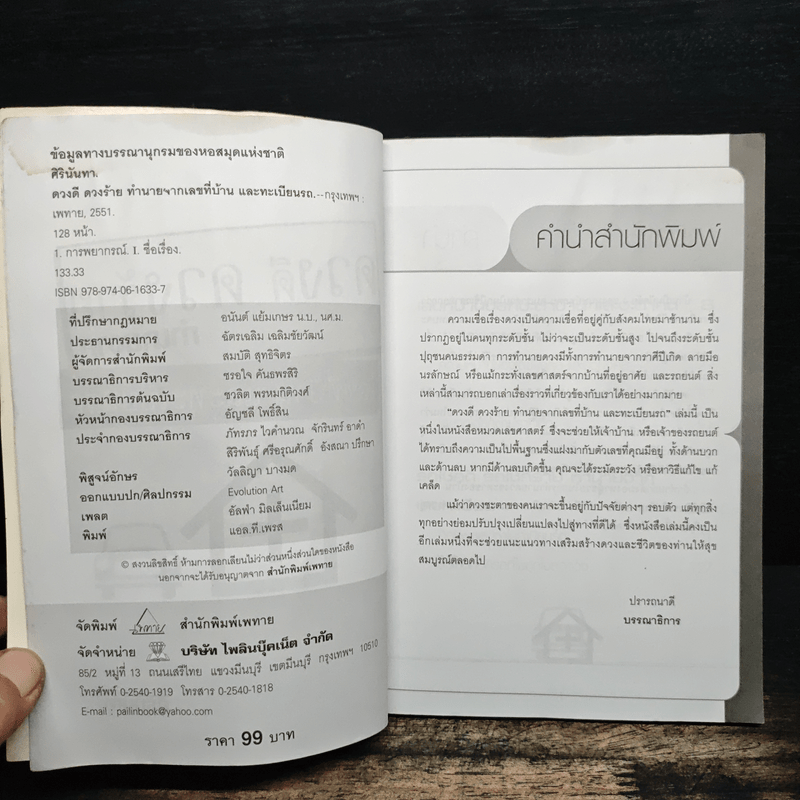 ข้อมูลทางบรรณานุกรมของหอสมุดแห่งชาติ
ศิรินันทา.
ดวงดี ดวงร้าย ทำนายจากเลขที่บ้าน และทะเบียนรถ.--กรุงเทพฯ :
เพทาย, 2551.
128 หน้า.
1. การพยากรณ์. I. ชื่อเรื่อง.
133.33
ISBN 978-974-06-1633-7
ที่ปรึกษากฎหมาย อนันต์ แย้มเกษร น.บ., นศ.ม.
ประธานกรรมการ ฉัตรเฉลิม เฉลิมชัยวัฒน์
ผู้จัดการสำนักพิมพ์ สมบัติ สุทธิจิตร
บรรณาธิการบริหาร ชรอใจ คันธพรสิริ
บรรณาธิการต้นฉบับ ชวลิต พรหมกิติวงศ์
หัวหน้ากองบรรณาธิการ อัญชลี โพธิ์สิน
ประจำกองบรรณาธิการ ภัทรภร ไวคำนวณ จักรินทร์ อาดำ
สิริพันธุ์ ศรีอรุณศักดิ์ อังสณา ปรึกษา
พิสูจน์อักษร วัลลิญา บางมด
ออกแบบปก/ศิลปกรรม Evolution Art
เพลต อัลฟ่า มิลเล็นเนียม
พิมพ์ แอล.ที.เพรส
© สงวนลิขสิทธิ์ ห้ามการลอกเลียนไม่ว่าส่วนหนึ่งส่วนใดของหนังสือ
นอกจากจะได้รับอนุญาตจาก สำนักพิมพ์เพทาย
จัดพิมพ์ เพทาย สำนักพิมพ์เพทาย
จัดจำหน่าย บริษัท ไพลินบุ๊คเน็ต จำกัด
85/2 หมู่ที่ 13 ถนนเสรีไทย แขวงมีนบุรี เขตมีนบุรี กรุงเทพฯ 10510
โทรศัพท์ 0-2540-1919 โทรสาร 0-2540-1818
E-mail : pailinbook@yahoo.com
ราคา 99 บาท
คำนำสำนักพิมพ์
ความเชื่อเรื่องดวงเป็นความเชื่อที่อยู่คู่กับสังคมไทยมาช้านาน ซึ่ง
ปรากฏอยู่ในคนทุกระดับชั้น ไม่ว่าจะเป็นระดับชั้นสูง ไปจนถึงระดับชั้น
ปุถุชนคนธรรมดา การทำนายดวงมีทั้งการทำนายจากราศีปีเกิด ลายมือ
นรลักษณ์ หรือแม้กระทั่งเลขศาสตร์จากบ้านที่อยู่อาศัย และรถยนต์ สิ่ง
เหล่านี้สามารถบอกเล่าเรื่องราวที่เกี่ยวข้องกับเราได้อย่างมากมาย
"ดวงดี ดวงร้าย ทำนายจากเลขที่บ้าน และทะเบียนรถ" เล่มนี้ เป็น
หนึ่งในหนังสือหมวดเลขศาสตร์ ซึ่งจะช่วยให้เจ้าบ้าน หรือเจ้าของรถยนต์
ได้ทราบถึงความเป็นไปพื้นฐานซึ่งแฝงมากับตัวเลขที่คุณมีอยู่ ทั้งด้านบวก
และด้านลบ หากมีด้านลบเกิดขึ้น คุณจะได้ระมัดระวัง หรือหาวิธีแก้ไข แก้
เคล็ด
แม้ว่าดวงชะตาของคนเราจะขึ้นอยู่กับปัจจัยต่างๆ รอบตัว แต่ทุกสิ่ง
ทุกอย่างย่อมปรับปรุงเปลี่ยนแปลงไปสู่ทางที่ดีได้ ซึ่งหนังสือเล่มนี้คงเป็น
อีกเล่มหนึ่งที่จะช่วยแนะแนวทางเสริมสร้างดวงและชีวิตของท่านให้สุข
สมบูรณ์ตลอดไป
ปรารถนาดี
บรรณาธิการ